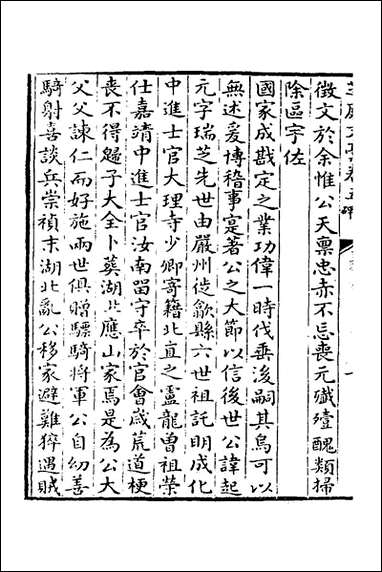 徵文於余惟公天稟忠赤不忘喪元殲殪醜類掃
除區宇佐
國家成戡定之業功偉一時代垂後嗣其烏可以
無述爰摶稽事寔著公之大節以信後世公諱起
元字瑞芝先世由嚴州徙歙縣六世祖託明成化
中進士官大理寺少卿寄籍北直之盧龍曾祖榮
仕嘉靖中進士官汝南留守卒於官會歲荒道梗
喪不得歸子大全卜葬湖北應山家焉是為公大
父父諫仁而好施兩世俱贈驃騎將軍公自幼善
騎射喜談兵崇禎末湖北亂公移家避難猝遇賊